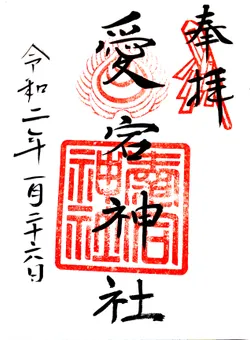 奉拝
愛宕神社
令和二年一月二十六日